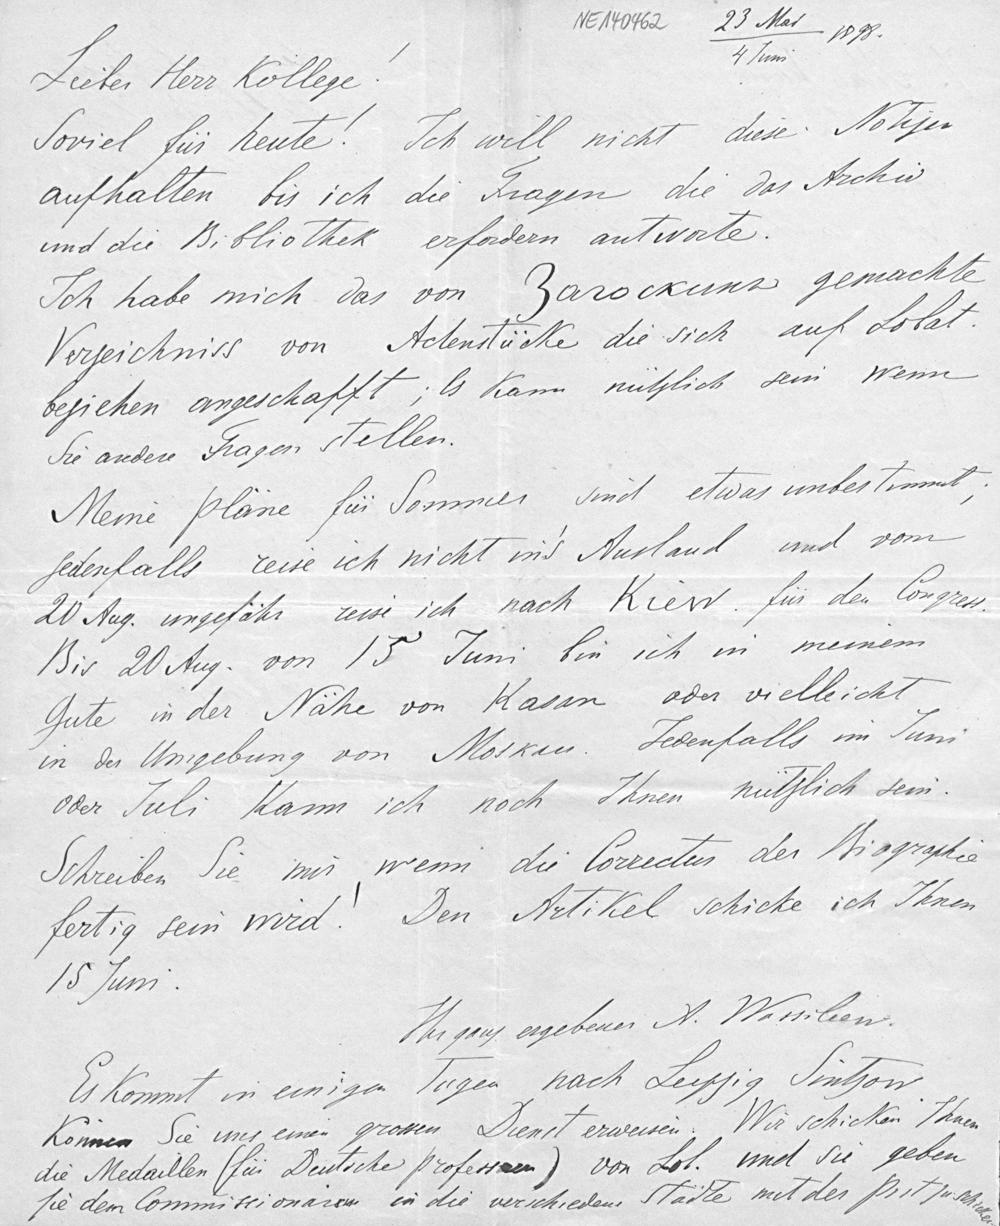 NE 140462
23 Mai
4 Juni 1898.
Lieber Herr Kollege!
Soviel für heute! Ich will nicht diese Notizen
aufhalten bis ich die Fragen die das Archiv
und die Bibliothek erfordern antworte.
Ich habe mich das von gemachte
Verzeichniss von Actenstücke die sich auf Lobat.
beziehen angeschafft; Es kann nützlich sein wenn
Sie andere Fragen stellen.
Meine Pläne für Sommer sind etwas unbestimmt;
jedenfalls reise ich nicht in's Ausland und vom
20 Aug. ungefähr reise ich nach Kiew für den Congress.
Bis 20 Aug. von 15 Juni bin ich in meinem
Gute in der Nähe von Kasan oder vielleicht
in der Umgebung von Moskau. Jedenfalls im Juni
oder Juli kann ich noch Ihnen nützlich sein.
Schreiben Sie mir wenn die Correctur der Biographie
fertig sein wird! Den Artikel schicke ich Ihnen
15 Juni.
Ihr ganz ergebener A. Wassiliew.
Es kommt in einigen Tagen nach Leipzig Sintzow
Können Sie uns einen grossen Dienst erweisen. Wir schicken Ihnen
die Medaillen (für Deutsche Professoren) von Lob. und Sie geben
sie dem in die verschiedene Städte mit der Post zu schicken